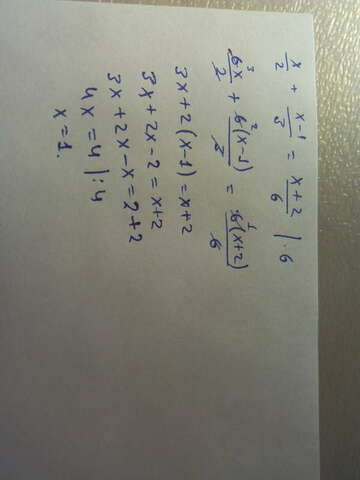 x/2 + x-1/3 = x+2/6 | ·6
6x/2 + 6(x-1)/3 = 6(x+2)/6
3x+2(x-1)=x+2
3x+2x-2=x+2
3x+2x-x=2+2
4x=4 |:4
x=1.